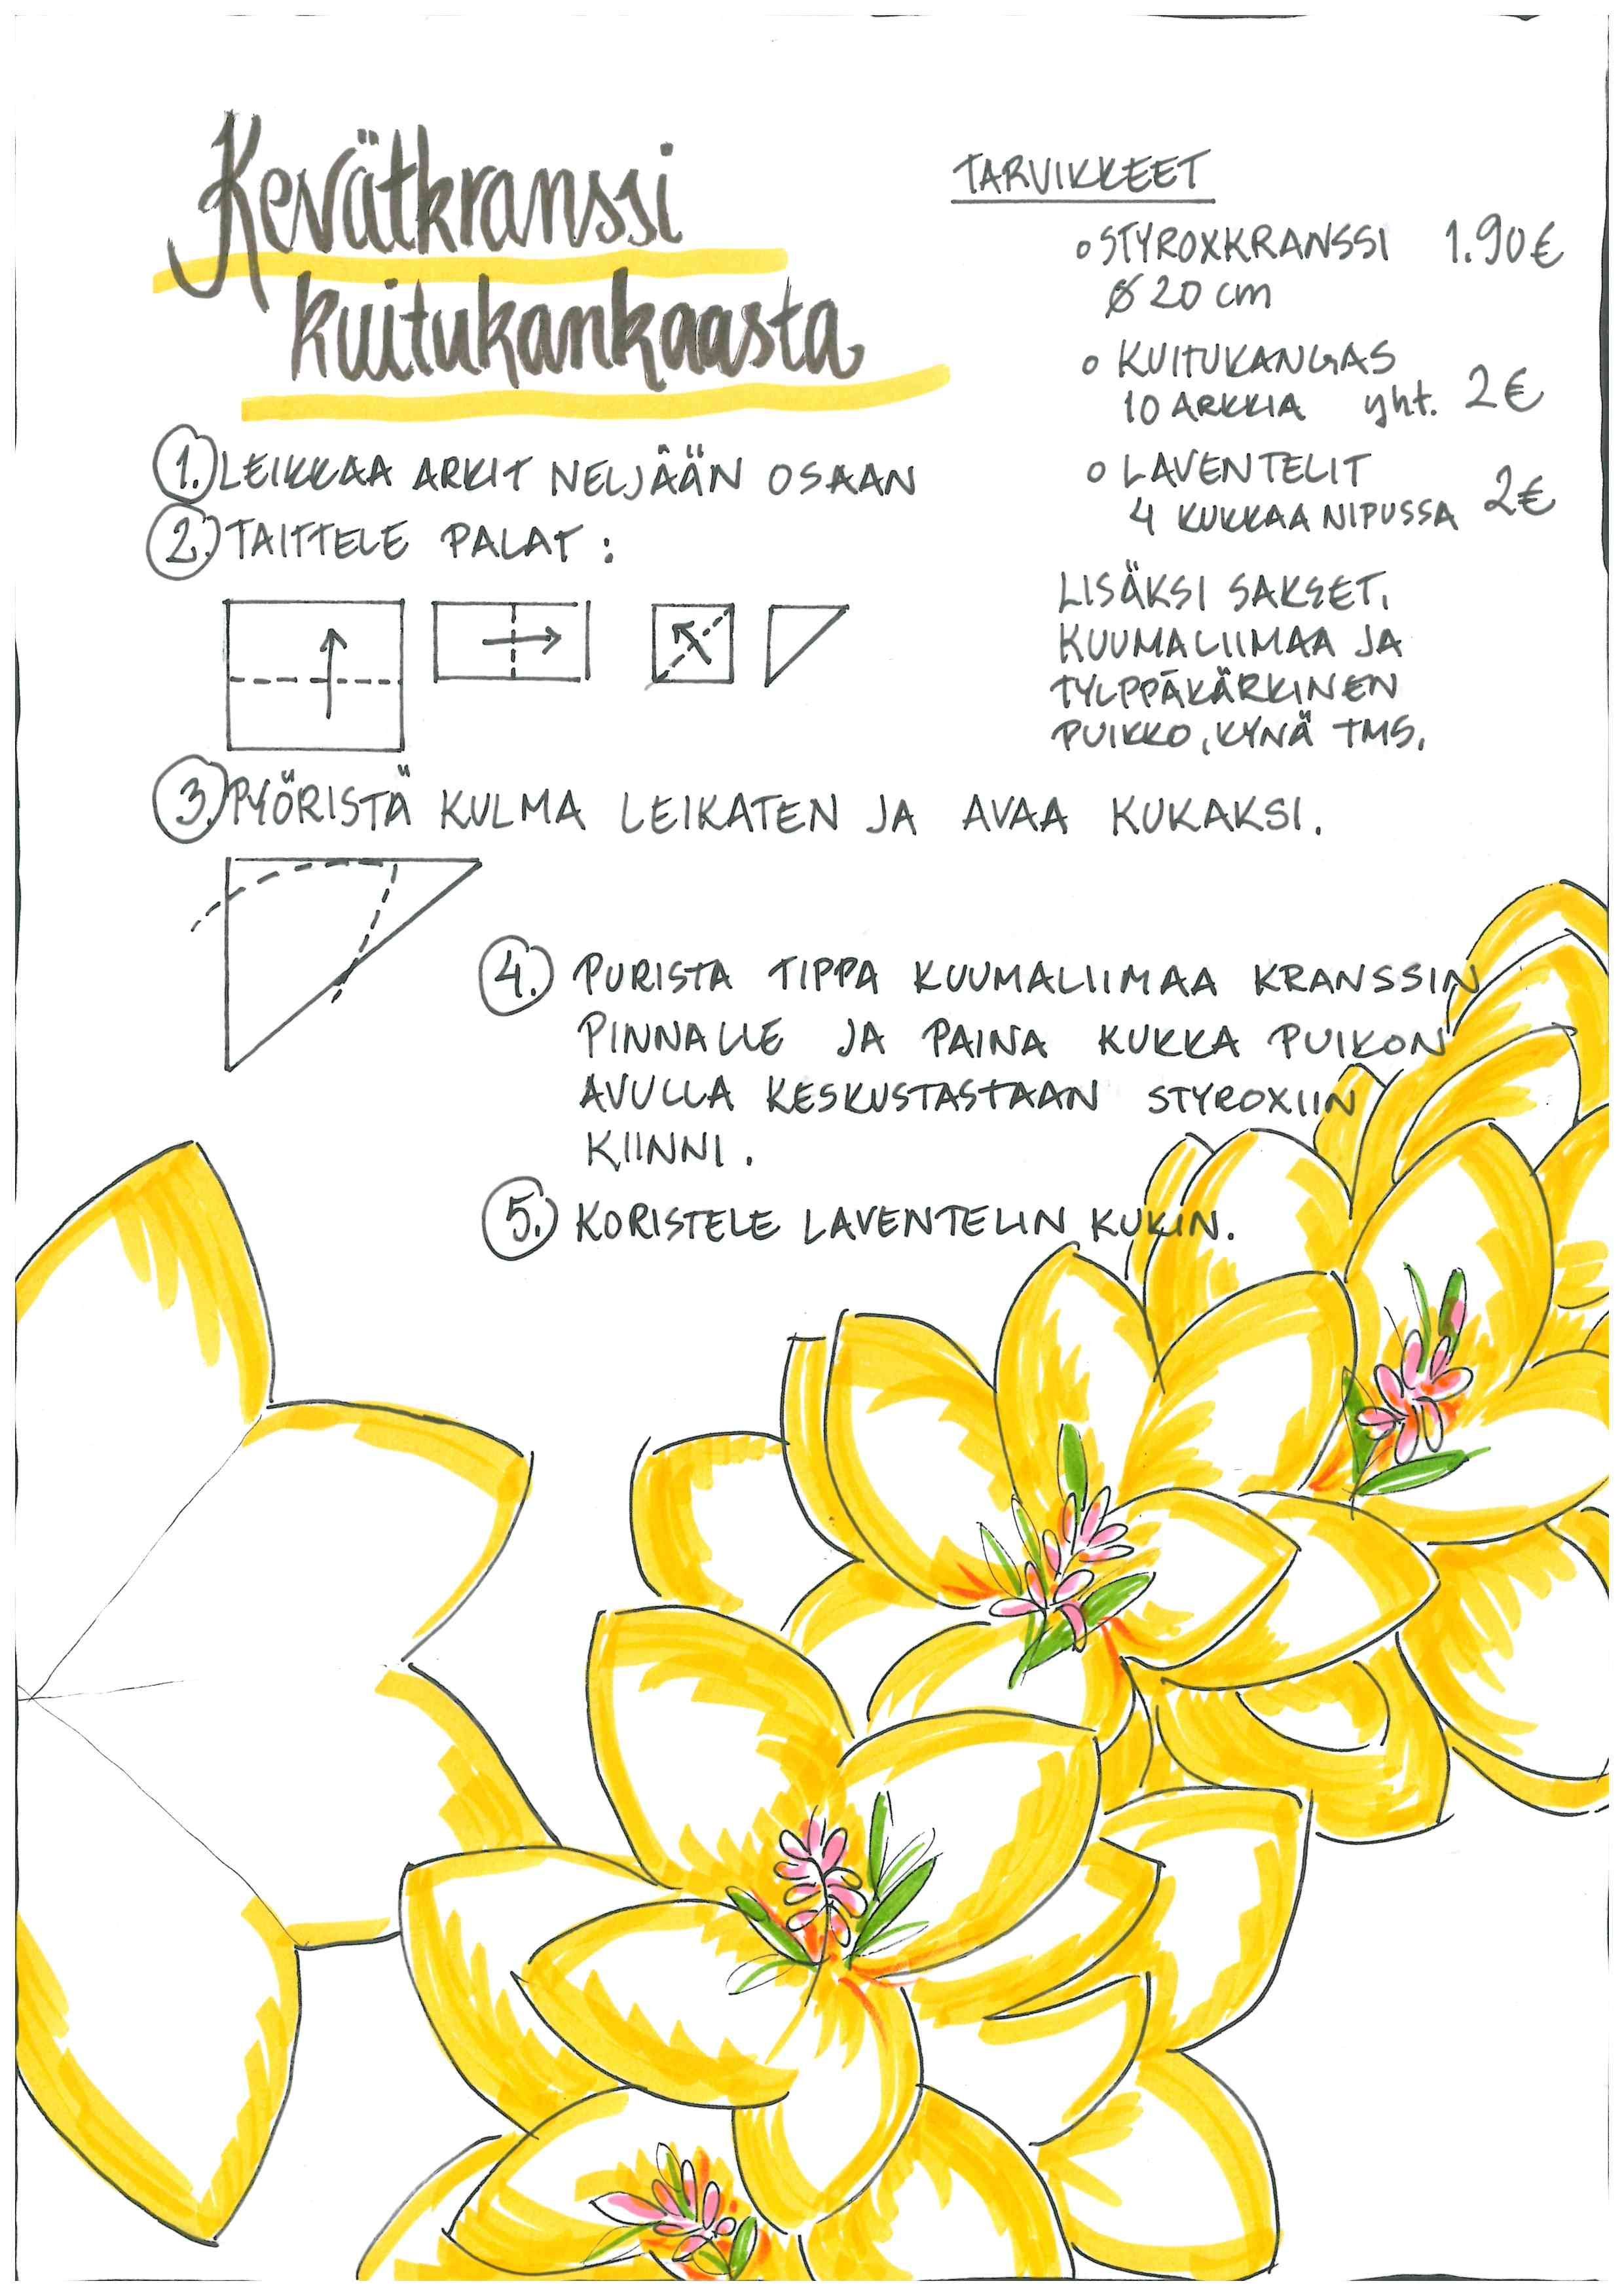 Kevätkranssi
kuitukankaasta
TARVIKKEET
o STYROXKRANSSI 1.90€
Ø 20 cm
o KUITUKANGAS
10 ARKKIA yht. 2€
o LAVENTELIT
4 KUKKAA NIPUSSA 2€
LISÄKSI SAKSET,
KUUMALIIMAA JA
TYLPPÄKÄRKINEN
PUIKKO, KYNÄ TMS.
1. LEIKKAA ARKIT NELJÄÄN OSAAN
2. TAITTELE PALAT:
3. PYÖRISTÄ KULMA LEIKATEN JA AVAA KUKAKSI.
4. PURISTA TIPPA KUUMALIIMAA KRANSSIN
PINNALLE JA PAINA KUKKA PUIKON
AVULLA KESKUSTASTAAN STYROXIIN
KIINNI.
5. KORISTELE LAVENTELIN KUKIN.